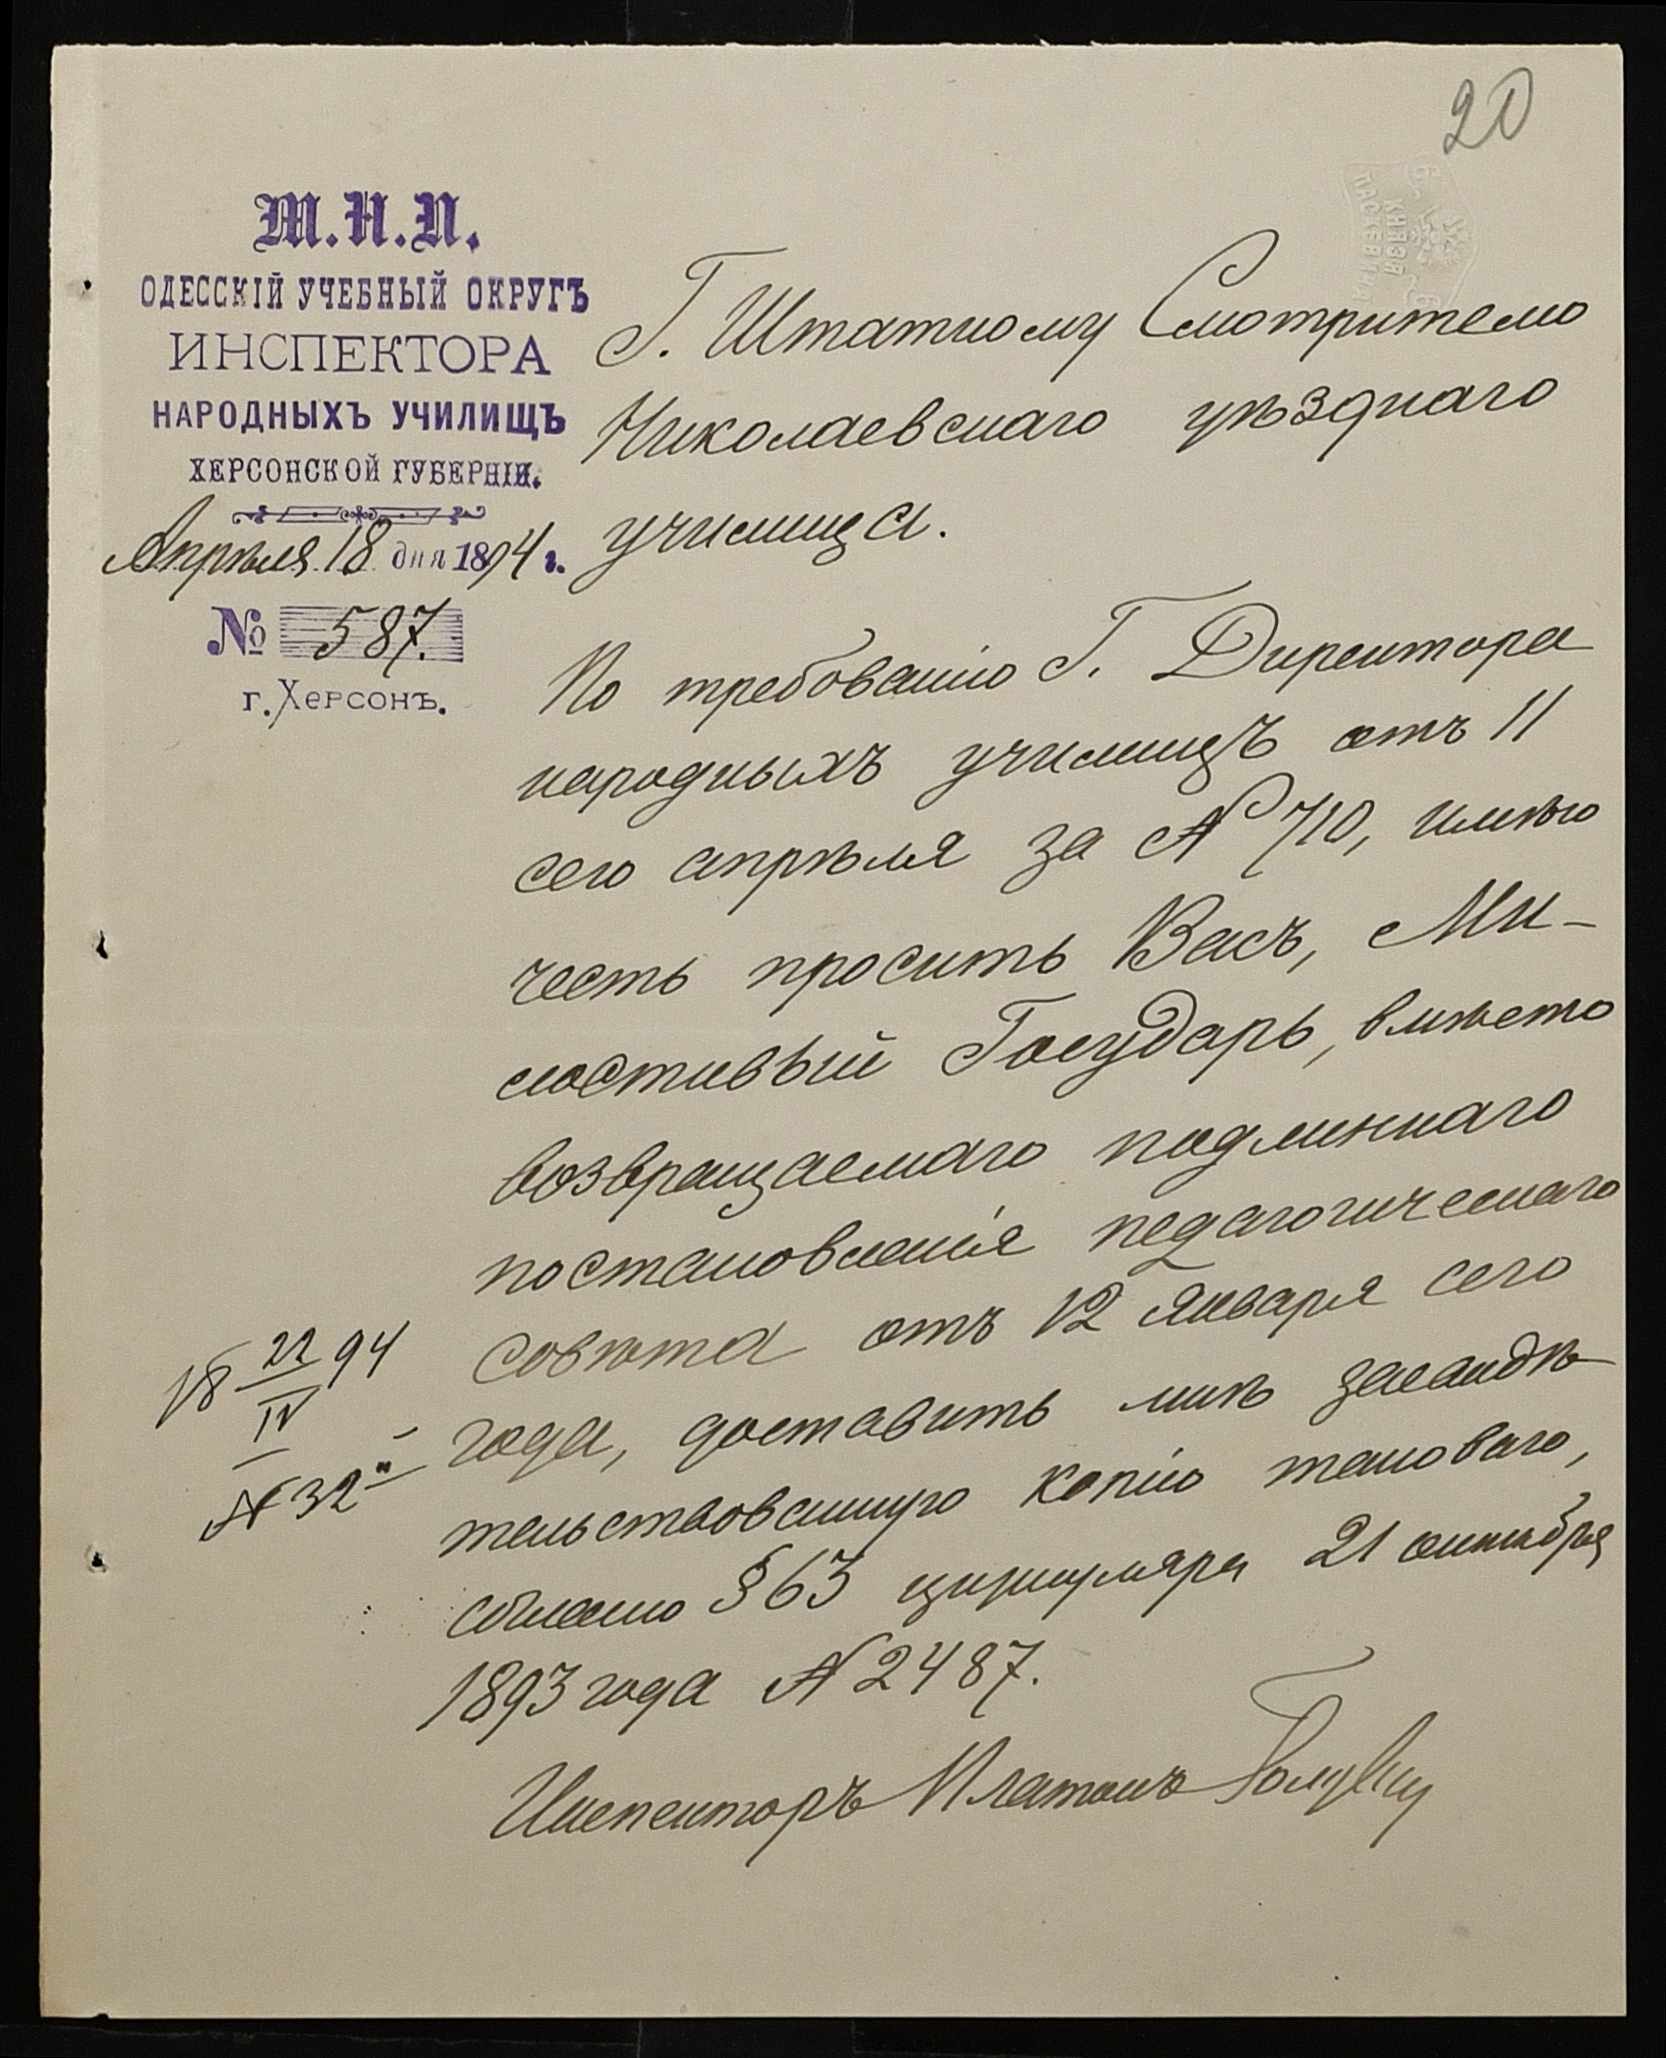 20
М.Н.П.
ОДЕССКІЙ УЧЕБНЫЙ ОКРУГЪ
ИНСПЕКТОРА
НАРОДНЫХЪ УЧИЛИЩЪ
ХЕРСОНСКОЙ ГУБЕРНІИ.
Апрѣля 18 дня 1894 г.
№ 587.
г. Херсонъ.
КНЯЗЯ
ПАСКЕВИЧА
Г. Штатному Смотрителю
Николаевскаго уѣзднаго
училища.
По требованію Г. Директора
народныхъ училищъ отъ 11
сего апрѣля за № 710, имѣю
честь просить Васъ, Ми-
лостивый Государь, вмѣсто
возвращаемаго подлиннаго
постановленія педагогическаго
совѣта отъ 12 Января сего
года, доставить мнѣ засвидѣ-
тельствованную копію таковаго,
согласно § 63 циркуляра 21 октября
1893 года № 2487.
Инспекторъ Платонъ
18 22/IV 94
№ 32